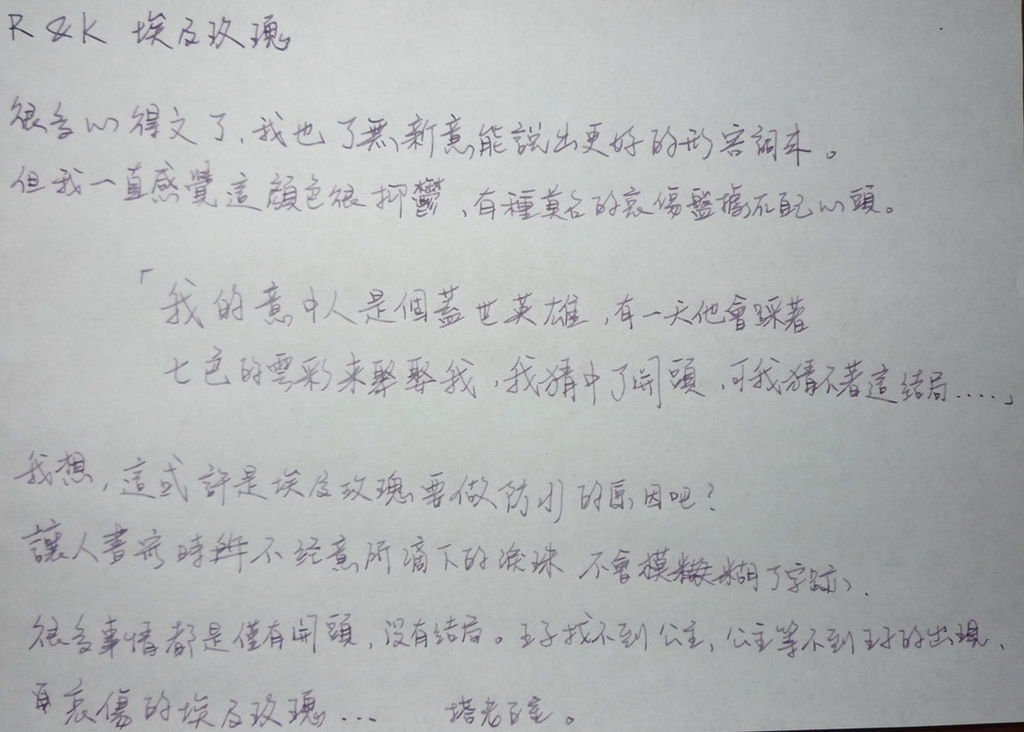 R&K 埃及玫瑰
很多心得文了,我也了無新意能說出更好的形容詞來。
但我一直感覺這顏色很抑鬱,有種莫名的哀傷盤據在心頭。
「我的意中人是個蓋世英雄,有一天他會踩著
七色的雲彩來娶我,我猜中了開頭,可我猜不著這結局.....」
我想,這或許是埃及玫瑰要做防水的原因吧?
讓人書寫時不經意所滴下的淚珠 不會模糊了字跡,
很多事情都是僅有開頭,沒有結局。王子找不到公主,公主等不到王子的出現、
哀傷的埃及玫瑰... 塔老